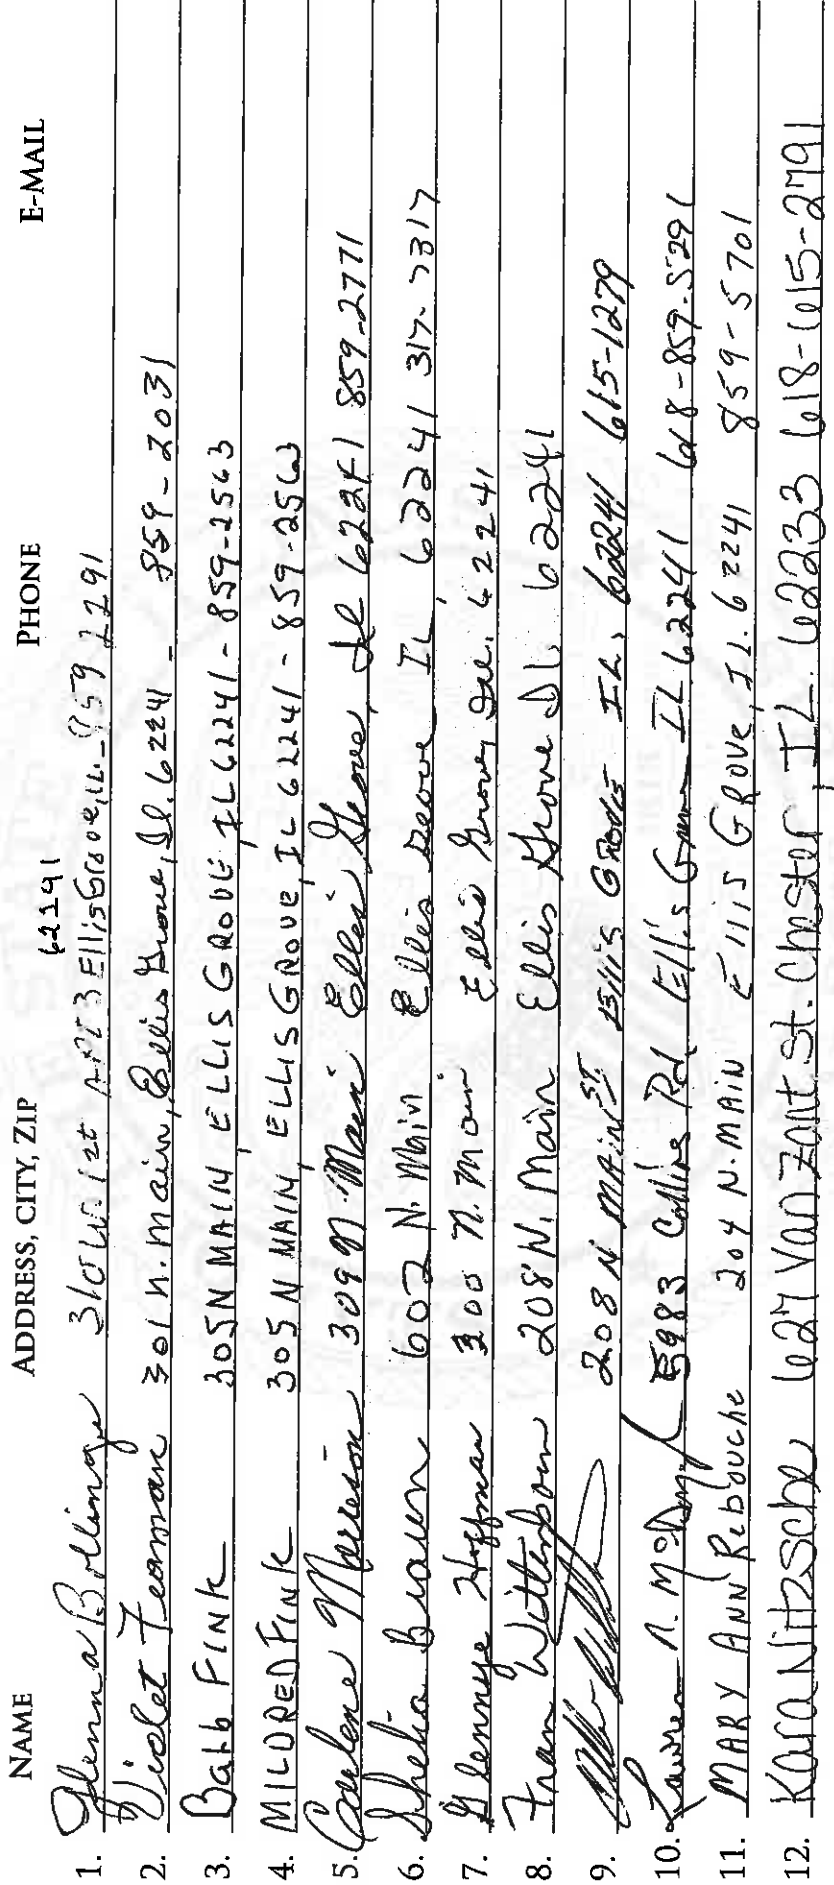 NAME ADDRESS, CITY, ZIP PHONE E-MAIL
62241
1. Glenna Bollinger 310 W 1st APT 3 Ellis Grove, IL. 859 2291
2. Violet Feaman 301 N. Main, Ellis Grove, Il. 62241 - 859-2031
3. Barb Fink 305 N MAIN, ELLIS GROVE, IL 62241 - 859-2563
4. MILDRED FINK 305 N MAIN, ELLIS GROVE, IL 62241 - 859-2563
5. Carlene Morrison 309 N. Main Ellis Grove, Il 62241 859-2771
6. Shelia Braun 602 N. Main Ellis Grove IL, 62241 317-7317
7. Glennye Hoffman 300 N. Main Ellis Grove, Ill. 62241
8. Fran Wittenborn 208 N. Main Ellis Grove Il. 62241
9. 208 N MAIN ST. Ellis Grove IL, 62241 615-1279
10. 5983 Collins Rd Ellis Grove IL 62241 618-859-5291
11. MARY ANN Rebouche 204 N. MAIN Ellis GROVE, IL. 62241 859-5701
12. Kara Nitzsche 627 Van Zant St. Chester, IL. 62233 618-615-2791